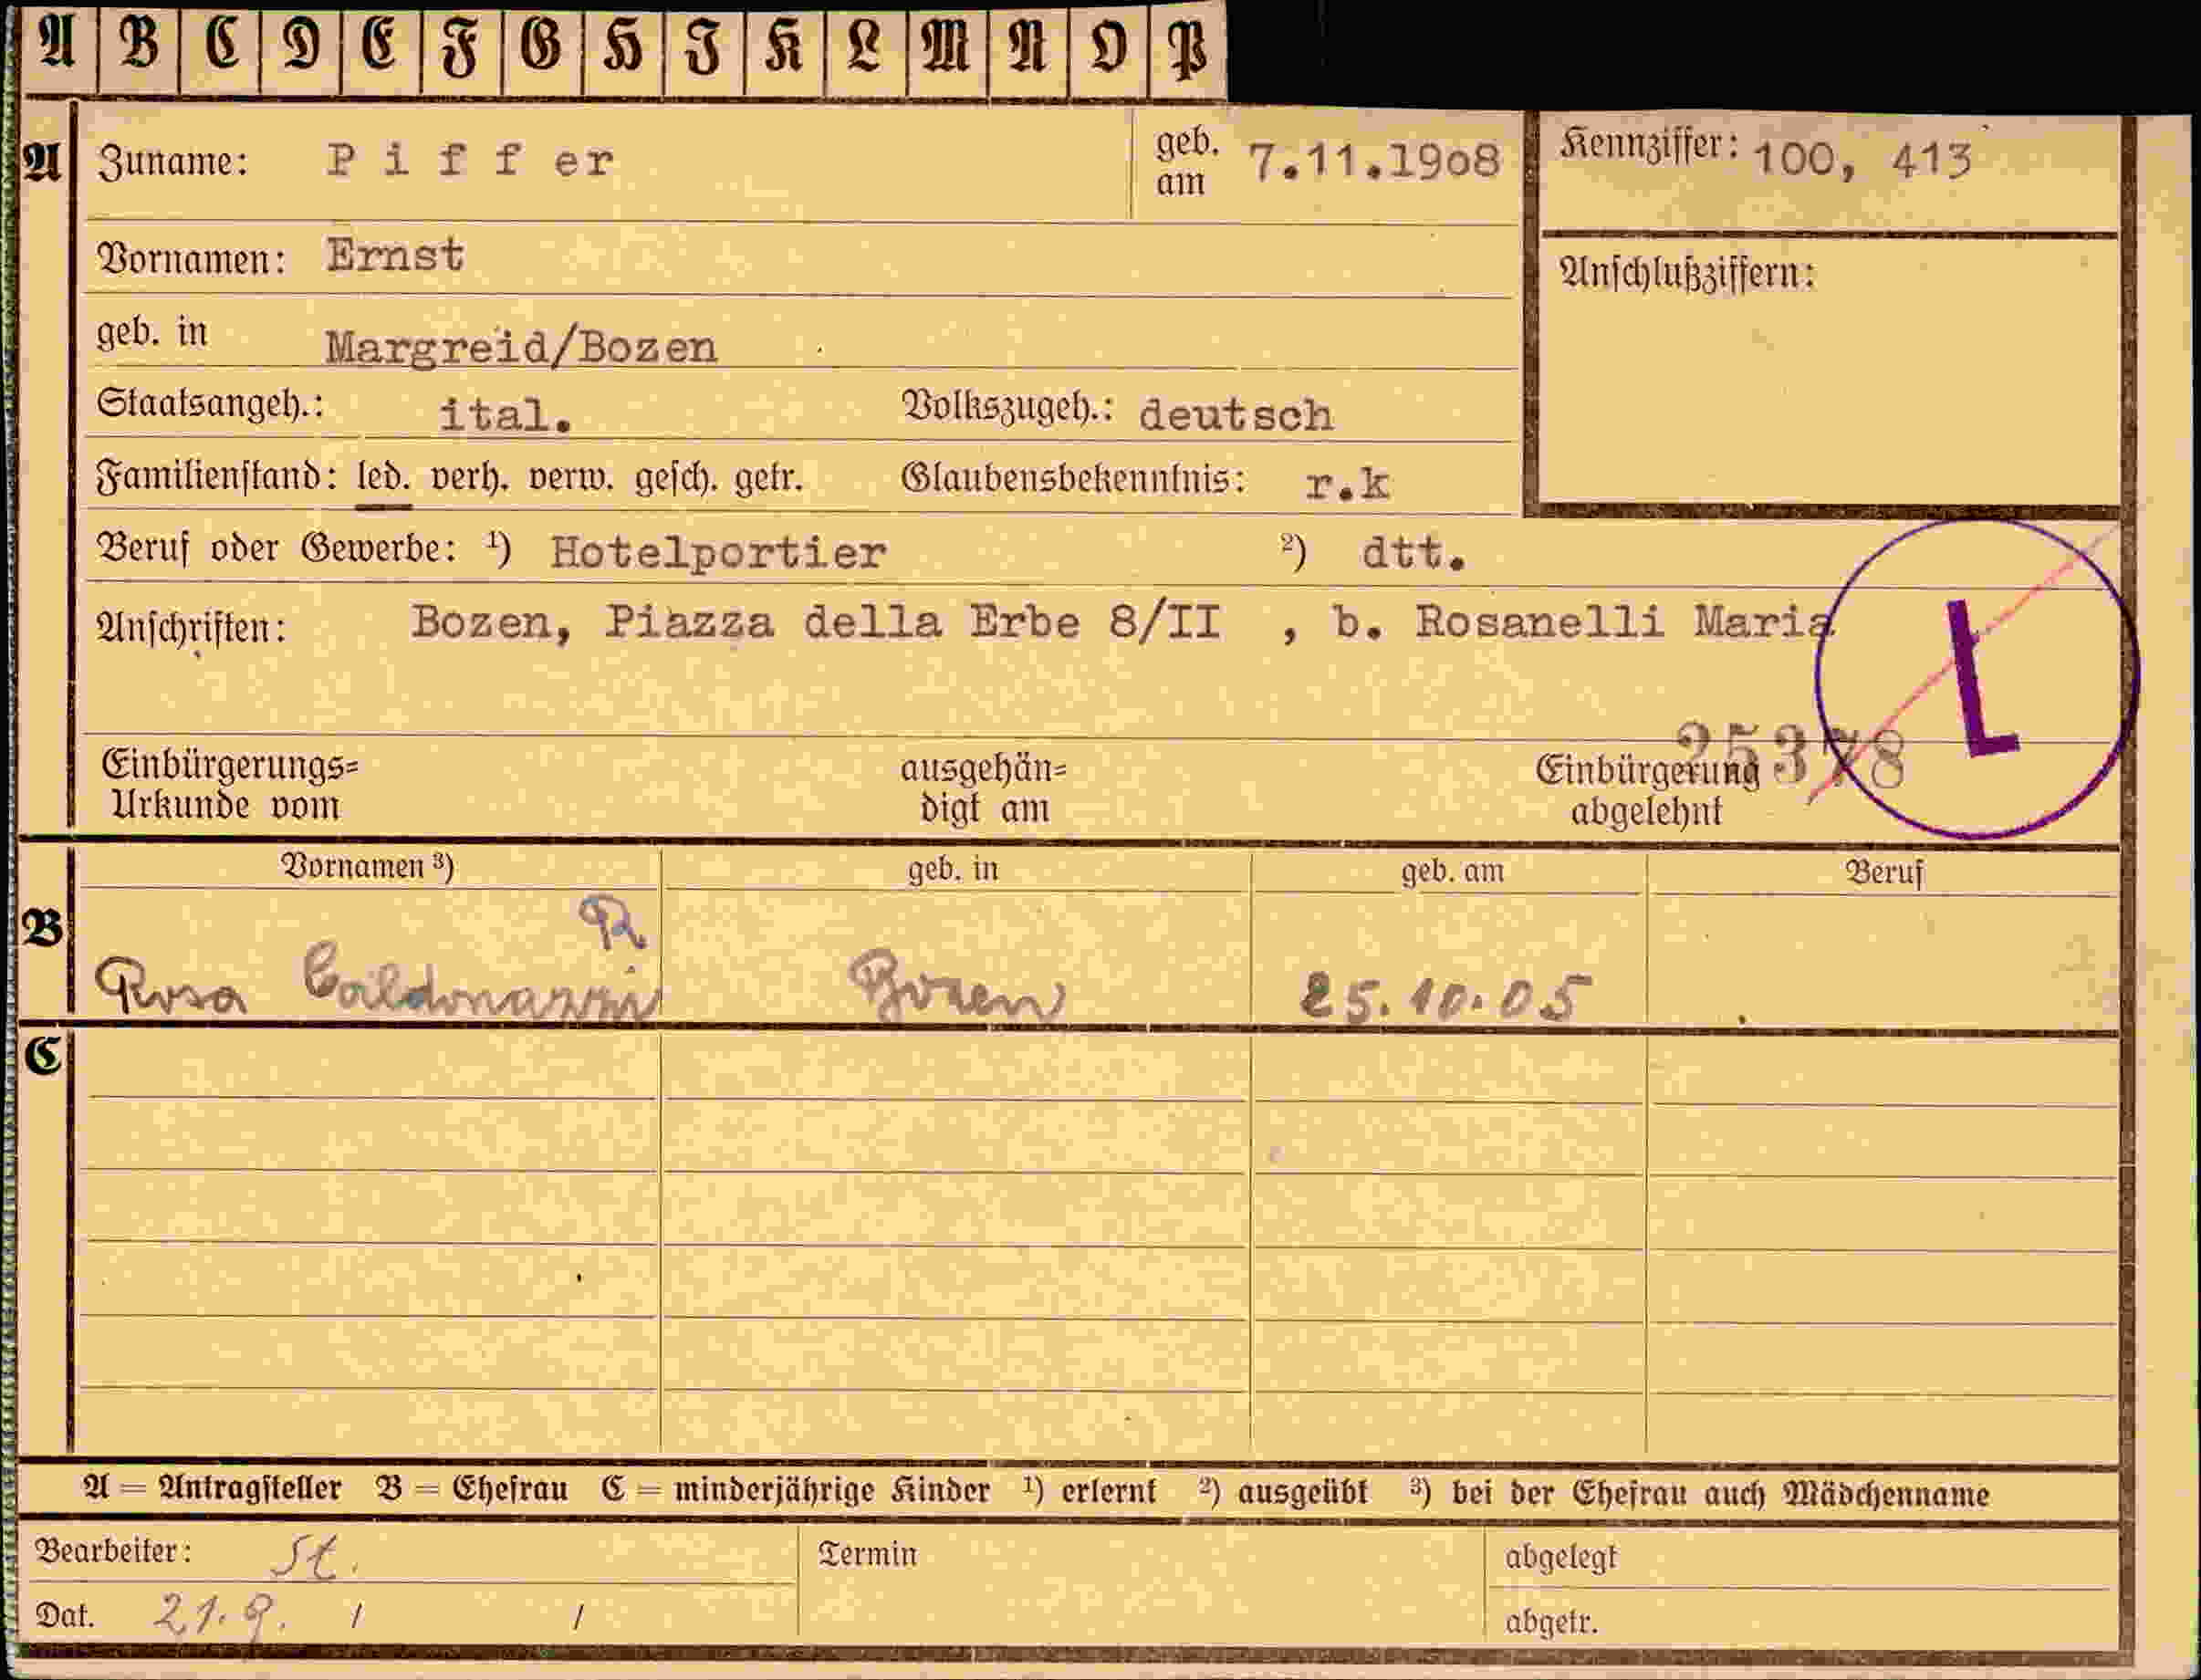 A B C D E F G H J K L M N O P
A Zuname: Piffer geb. am 7.11.19o8 Kennziffer: 100, 413
Vornamen: Ernst Anschlußziffern:
geb. in Margreid/Bozen
Staatsangeh.: ital. Volkszugeh.: deutsch
Familienstand: led. verh. verw. gesch. getr. Glaubensbekenntnis: r.k
Beruf oder Gewerbe: 1) Hotelportier 2) dtt.
Anschriften: Bozen, Piazza della Erbe 8/II , b. Rosanelli Maria
L
25378
Einbürgerungs= ausgehän= Einbürgerung
Urkunde vom digt am abgelehnt
Vornamen 3) geb. in geb. am Beruf
R
B Rosa Caldonazzi Bozen 25.10.05
C
A = Antragsteller B = Ehefrau C = minderjährige Kinder 1) erlernt 2) ausgeübt 3) bei der Ehefrau auch Mädchenname
Bearbeiter: St. Termin abgelegt
Dat. 21.9. / / abgetr.